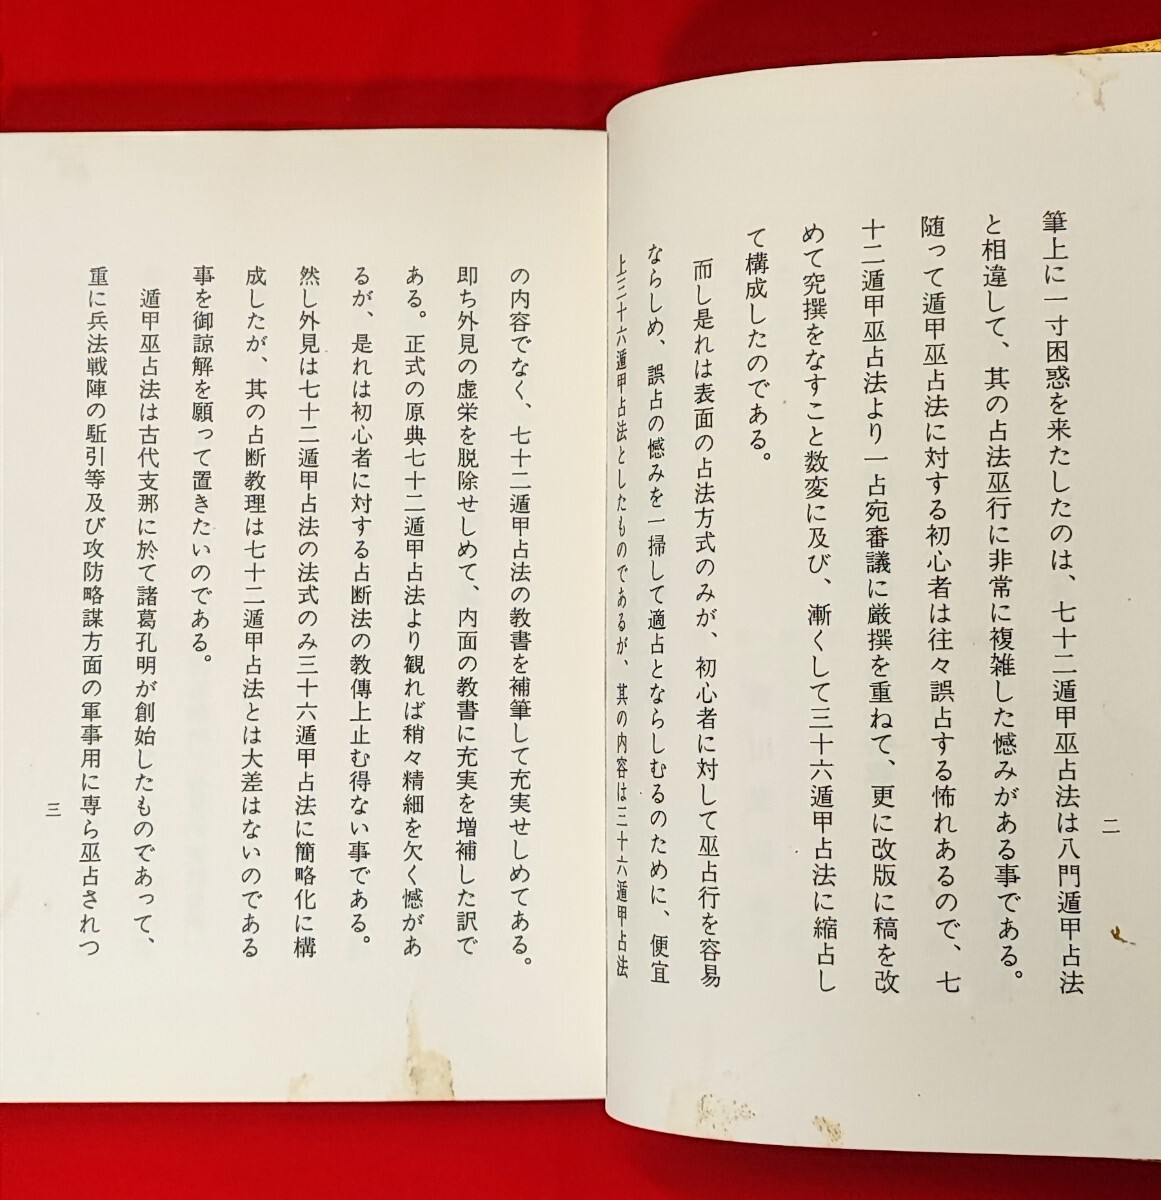 二
筆上に一寸困惑を来たしたのは、七十二遁甲巫占法は八門遁甲占法
と相違して、其の占法巫行に非常に複雑した憾みがある事である。
随って遁甲巫占法に対する初心者は往々誤占する怖れあるので、七
十二遁甲巫占法より一占宛審議に厳撰を重ねて、更に改版に稿を改
めて究撰をなすこと数変に及び、漸くして三十六遁甲占法に縮占し
て構成したのである。
而し是れは表面の占法方式のみが、初心者に対して巫占行を容易
ならしめ、誤占の憾みを一掃して適占とならしむるのために、便宜
上三十六遁甲占法としたものであるが、其の内容は三十六遁甲占法
の内容でなく、七十二遁甲占法の教書を補筆して充実せしめてある。
即ち外見の虚栄を脱除せしめて、内面の教書に充実を増補した訳で
ある。正式の原典七十二遁甲占法より観れば稍々精細を欠く憾があ
るが、是れは初心者に対する占断法の教傳上止む得ない事である。
然し外見は七十二遁甲占法の法式のみ三十六遁甲占法に簡略化に構
成したが、其の占断教理は七十二遁甲占法とは大差はないのである
事を御諒解を願って置きたいのである。
遁甲巫占法は古代支那に於て諸葛孔明が創始したものであって、
重に兵法戦陣の駈引等及び攻防略謀方面の軍事用に専ら巫占されつ
三